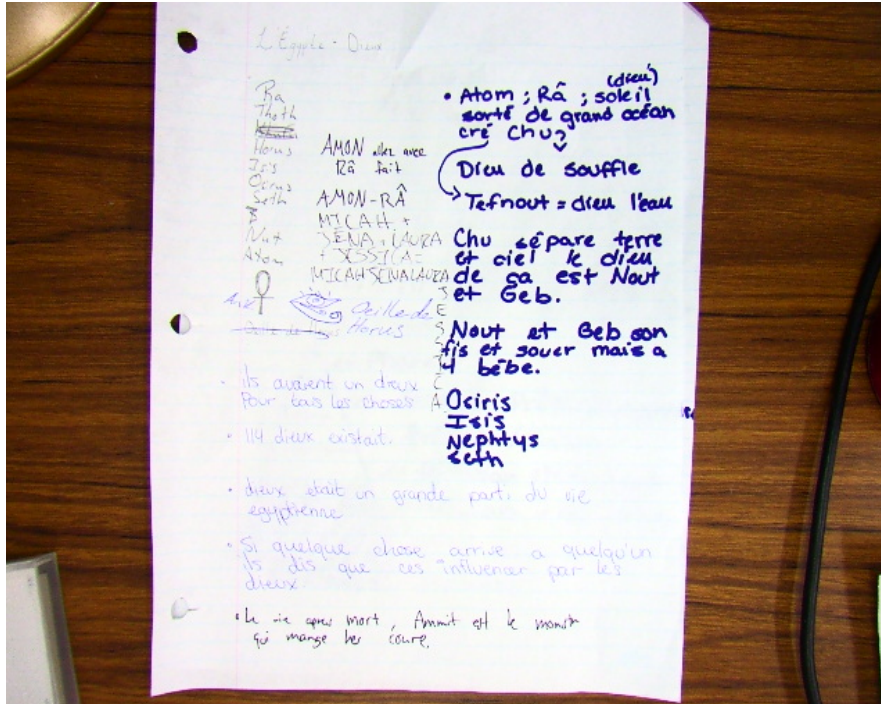 L'Égypte - Dieux
Ra
Thoth
Horus
Isis
Osirus
Seth
Nut
Atom
AMON allez avec
Râ fait
AMON-RÂ
MICAH +
JENA + LAURA
+ JESSICA =
MICAHJENALAURA
JESSICA
Oeille de
Horus
• ils avaient un dieux
Pour tous les choses
• 114 dieux existait.
• dieux était un grande parti du vie
egyptienne
• Si quelque chose arrive a quelqu'un
ils dis que ces influencer par les
dieux
• Le vie apres mort, Ammit est le monstr
qui mange les coure.
(dieu)
• Atom ; Râ ; soleil
sorté de grand océan
cré Chu?
Dieu de souffle
Tefnout = dieu l'eau
Chu sépare terre
et ciel le dieu
de ça est Nout
et Geb.
Nout et Geb son
fis et souer mais a
4 bébe.
Osiris
Isis
Nephtys
Seth